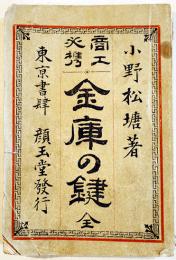 小野松塘著
商工
必携
金庫の鍵 全
東京書肆 顔玉堂發行